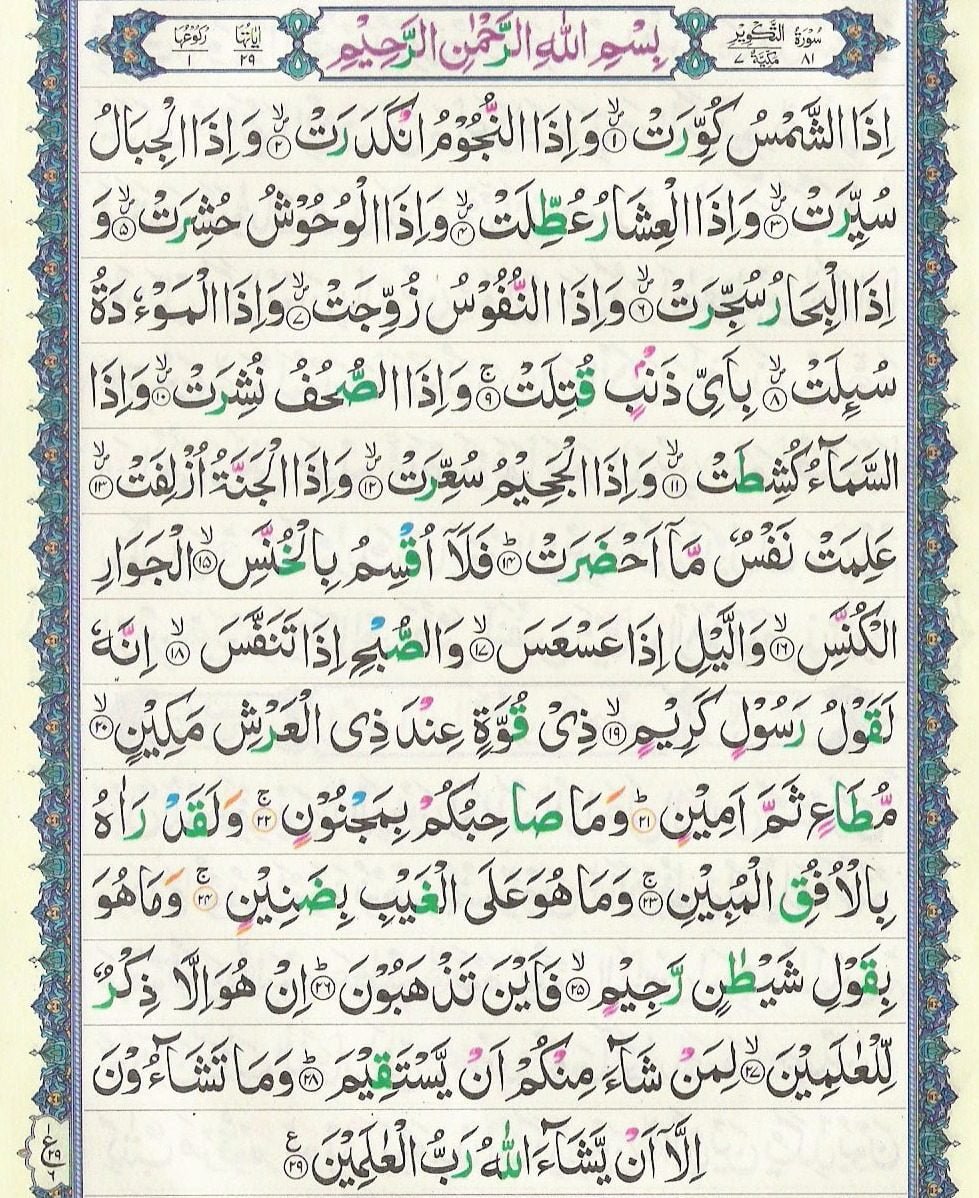 سُورَةُ التَّكْوِيْرِ مَكِّيَّةٌ ٨١ ٧
بِسْمِ اللّٰهِ الرَّحْمٰنِ الرَّحِيْمِ
اٰيَاتُهَا ٢٩ رُكُوْعُهَا ١
اِذَا الشَّمْسُ كُوِّرَتْ ۙ﴿١﴾ وَ اِذَا النُّجُوْمُ انْكَدَرَتْ ۙ﴿٢﴾ وَ اِذَا الْجِبَالُ
سُيِّرَتْ ۙ﴿٣﴾ وَ اِذَا الْعِشَارُ عُطِّلَتْ ۙ﴿٤﴾ وَ اِذَا الْوُحُوْشُ حُشِرَتْ ۙ﴿٥﴾ وَ
اِذَا الْبِحَارُ سُجِّرَتْ ۙ﴿٦﴾ وَ اِذَا النُّفُوْسُ زُوِّجَتْ ۙ﴿٧﴾ وَ اِذَا الْمَوْءٗدَةُ
سُىِٕلَتْ ۙ﴿٨﴾ بِاَىِّ ذَنْۢبٍ قُتِلَتْ ۚ﴿٩﴾ وَ اِذَا الصُّحُفُ نُشِرَتْ ۙ﴿١٠﴾ وَ اِذَا
السَّمَآءُ كُشِطَتْ ۙ﴿١١﴾ وَ اِذَا الْجَحِيْمُ سُعِّرَتْ ۙ﴿١٢﴾ وَ اِذَا الْجَنَّةُ اُزْلِفَتْ ۙ﴿١٣﴾
عَلِمَتْ نَفْسٌ مَّاۤ اَحْضَرَتْ ؕ﴿١٤﴾ فَلَاۤ اُقْسِمُ بِالْخُنَّسِ ۙ﴿١٥﴾ الْجَوَارِ
الْكُنَّسِ ۙ﴿١٦﴾ وَ الَّيْلِ اِذَا عَسْعَسَ ۙ﴿١٧﴾ وَ الصُّبْحِ اِذَا تَنَفَّسَ ۙ﴿١٨﴾ اِنَّهٗ
لَقَوْلُ رَسُوْلٍ كَرِيْمٍ ۙ﴿١٩﴾ ذِىْ قُوَّةٍ عِنْدَ ذِى الْعَرْشِ مَكِيْنٍ ۙ﴿٢٠﴾
مُّطَاعٍ ثَمَّ اَمِيْنٍ ؕ﴿٢١﴾ وَ مَا صَاحِبُكُمْ بِمَجْنُوْنٍ ۚ﴿٢٢﴾ وَ لَقَدْ رَاٰهُ
بِالْاُفُقِ الْمُبِيْنِ ۚ﴿٢٣﴾ وَ مَا هُوَ عَلَى الْغَيْبِ بِضَنِيْنٍ ۚ﴿٢٤﴾ وَ مَا هُوَ
بِقَوْلِ شَيْطٰنٍ رَّجِيْمٍ ۙ﴿٢٥﴾ فَاَيْنَ تَذْهَبُوْنَ ؕ﴿٢٦﴾ اِنْ هُوَ اِلَّا ذِكْرٌ
لِّلْعٰلَمِيْنَ ۙ﴿٢٧﴾ لِمَنْ شَآءَ مِنْكُمْ اَنْ يَّسْتَقِيْمَ ؕ﴿٢٨﴾ وَ مَا تَشَآءُوْنَ
اِلَّاۤ اَنْ يَّشَآءَ اللّٰهُ رَبُّ الْعٰلَمِيْنَ ﴿٢٩﴾ ع
ع ٢٩ ٦